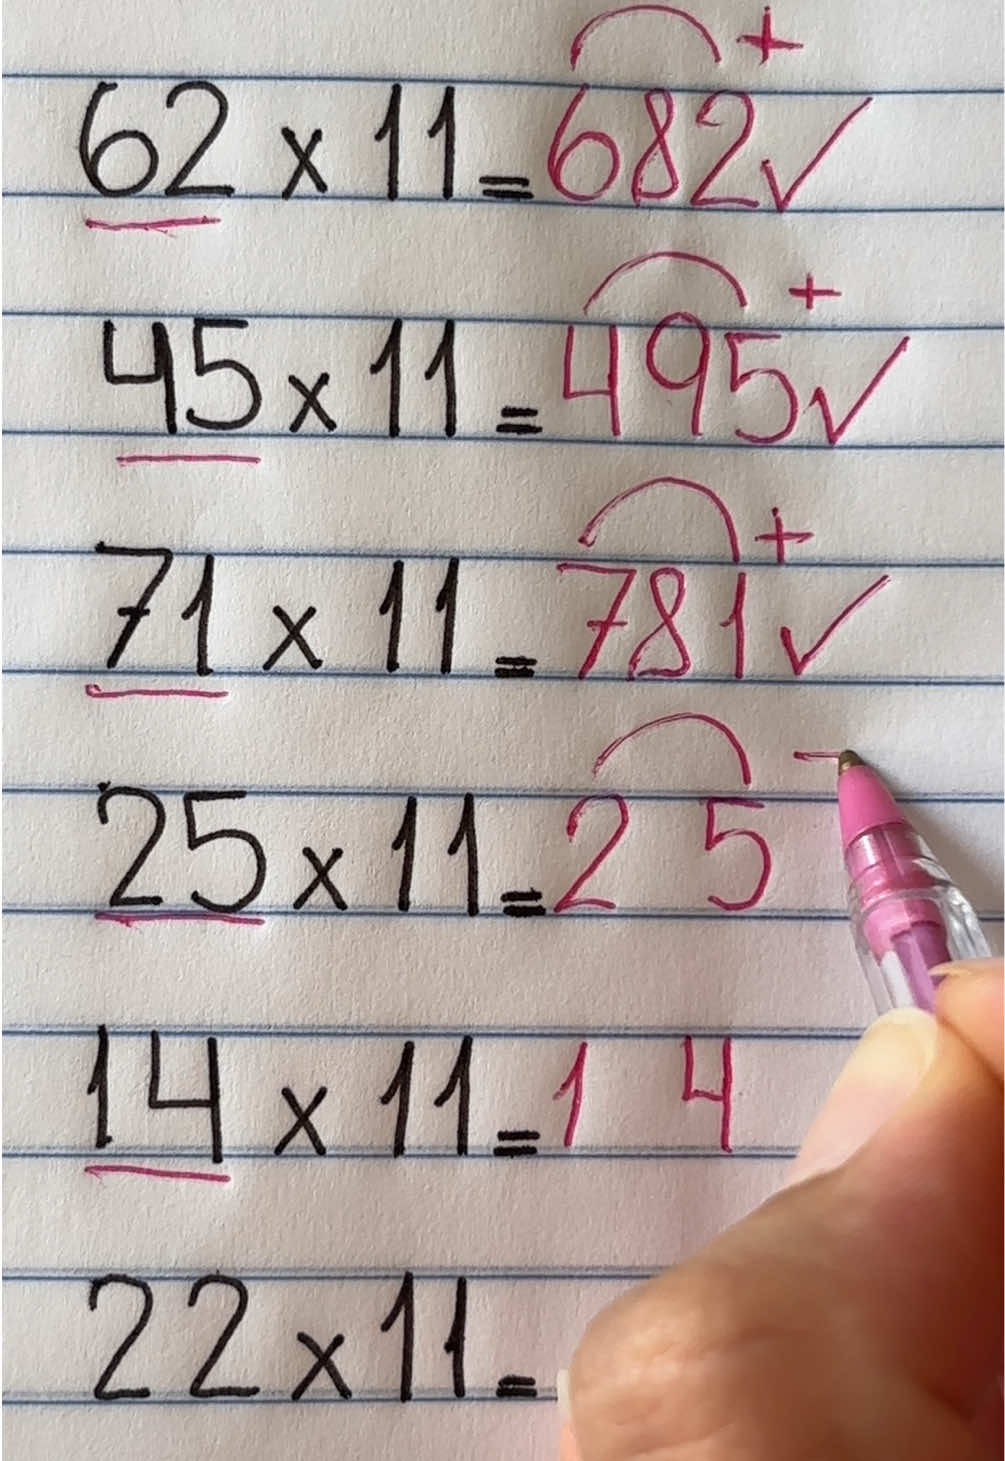 62 x 11 = 682 ✓ +
45 x 11 = 495 ✓ +
71 x 11 = 781 ✓ +
25 x 11 = 2 5 –
14 x 11 = 1 4
22 x 11 =